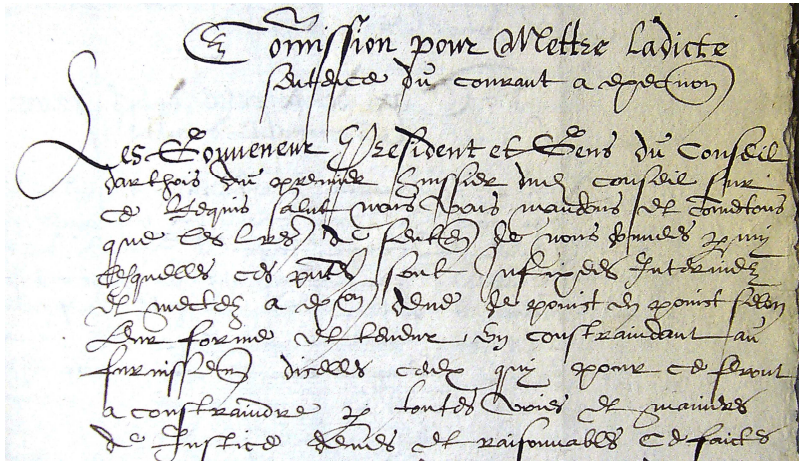 Comission pour Mettre Ladicte
sentence du courant a execution
Les Gouverneur President et Gens du Conseil
darthois au premier huissier dud conseil sur
ce Requis salut nous vous mandons et comectons
que les lres de senten de nous donnees p my
lesquelles ces pntes sont Infixees Interinez
et mectez a exon deue de poinct en poinct selon
Leur forme et teneur En constraindant au
furnissemt dicelles ceulx quy pour ce seront
a constraindre p toutes voies et manieres
de Justice deues et raisonnables Ce faictes